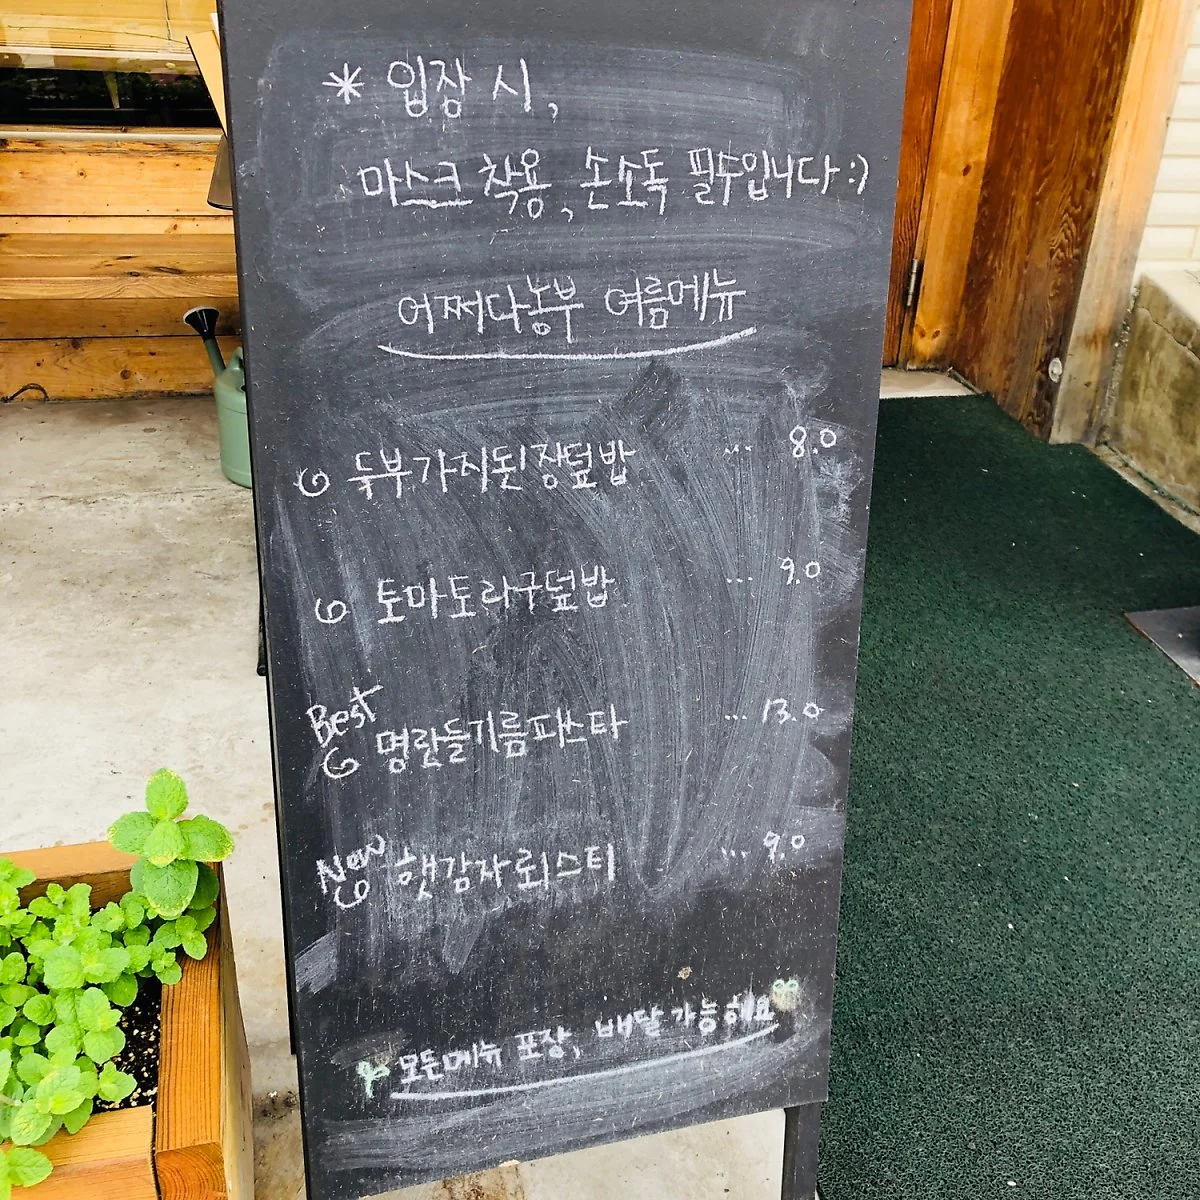 * 입장 시,
마스크 착용, 손소독 필수입니다 :)
어쩌다농부 여름메뉴
두부가지된장덮밥 ... 8.0
토마토라구덮밥 ... 9.0
Best
명란들기름파스타 ... 13.0
New 햇감자뢰스티 ... 9.0
모든메뉴 포장, 배달가능해요